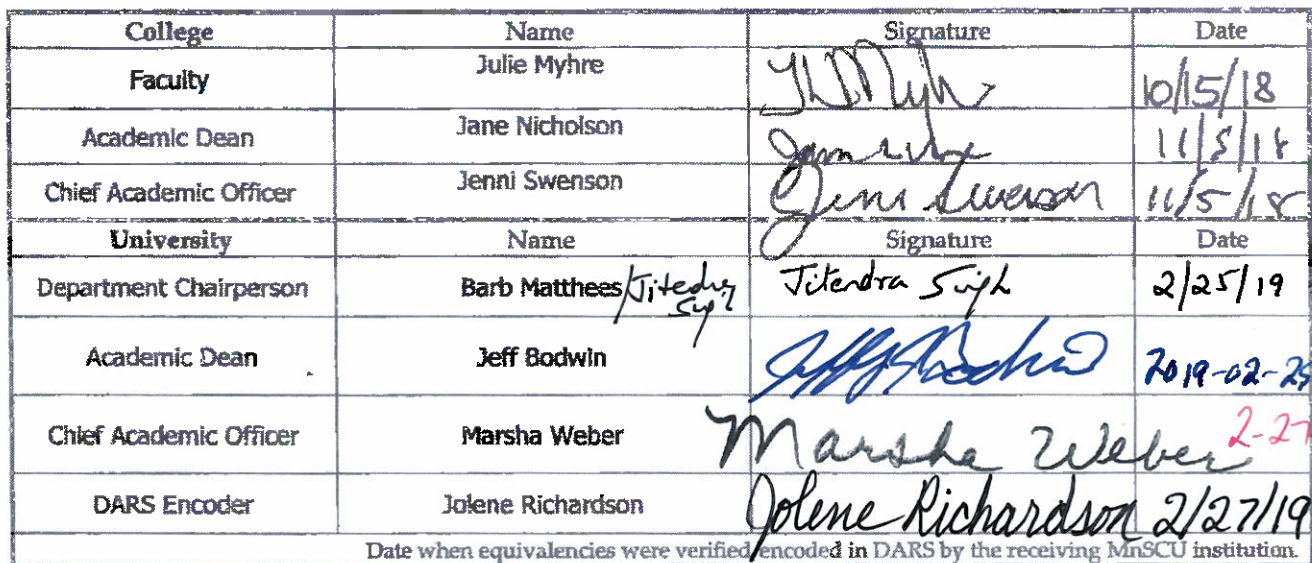 College Name Signature Date
Faculty Julie Myhre 10/15/18
Academic Dean Jane Nicholson 11/5/18
Chief Academic Officer Jenni Swenson Jenni Swenson 11/5/18
University Name Signature Date
Department Chairperson Barb Matthees/Jitendra Singh Jitendra Singh 2/25/19
Academic Dean Jeff Bodwin Jeffrey Bodwin
Chief Academic Officer Marsha Weber Marsha Weber 2-27
DARS Encoder Jolene Richardson Jolene Richardson 2/27/19
Date when equivalencies were verified/encoded in DARS by the receiving MnSCU institution.